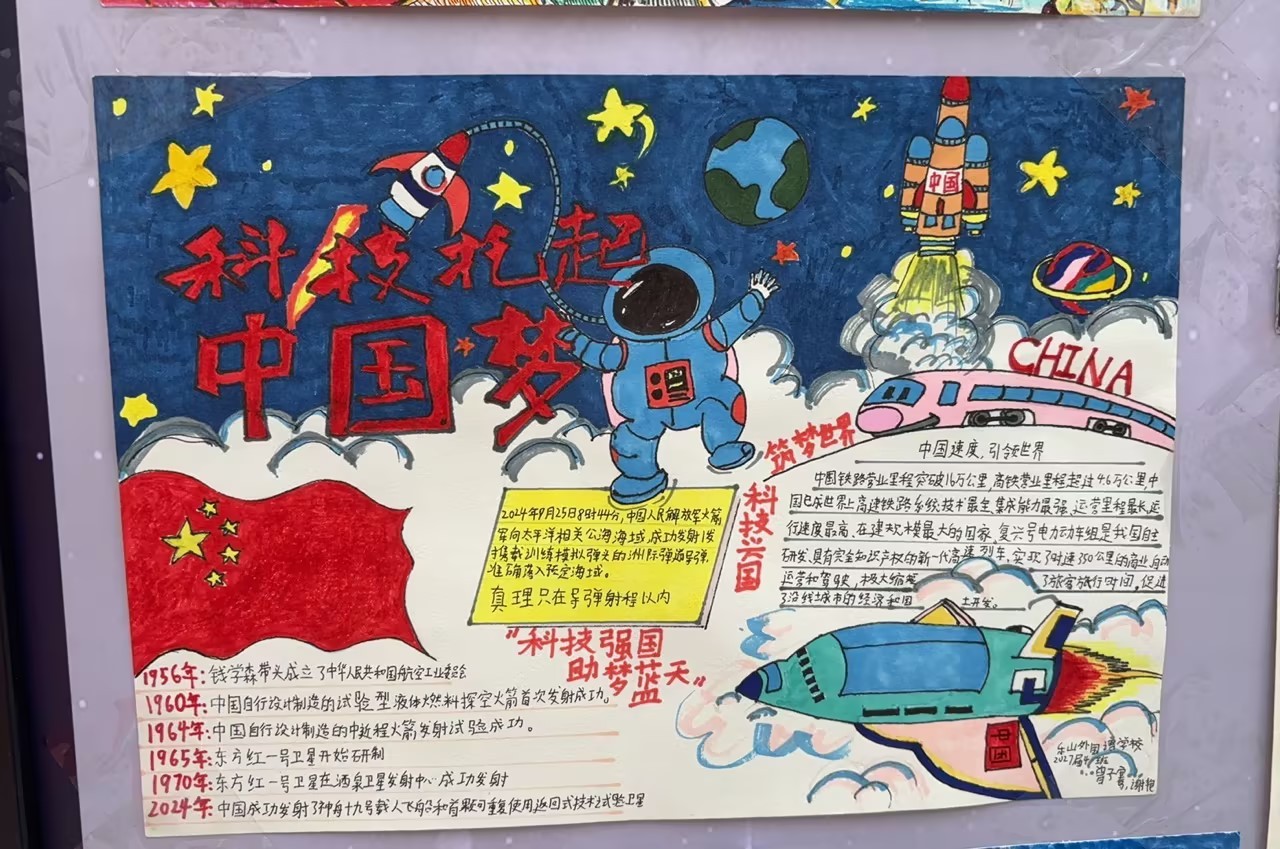 科技托起
中国梦
中国
CHINA
筑梦世界
科技兴国
中国速度，引领世界
中国铁路营业里程突破16万公里，高铁营业里程超过4.6万公里，中
国已成世界上高速铁路系统技术最全、集成能力最强、运营里程最长、运
行速度最高、在建规模最大的国家。复兴号电力动车组是我国自主
研发、具有完全知识产权的新一代高速列车，实现了时速350公里的商业自动
运营和驾驶，极大缩短了旅客旅行时间，促进
了沿线城市的经济和国土开发。
2024年9月25日8时44分，中国人民解放军火箭
军向太平洋相关公海海域，成功发射1发
携载训练模拟弹头的洲际弹道导弹，
准确落入预定海域。
真理只在导弹射程以内
“科技强国
助梦蓝天”
1956年：钱学森带头成立了中华人民共和国航空工业委员会
1960年：中国自行设计制造的试验型液体燃料探空火箭首次发射成功。
1964年：中国自行设计制造的中近程火箭发射试验成功。
1965年：东方红一号卫星开始研制
1970年：东方红一号卫星在酒泉卫星发射中心成功发射
2024年：中国成功发射了神舟十九号载人飞船和首颗可重复使用返回式技术试验卫星
中国
乐山外国语学校
2027届